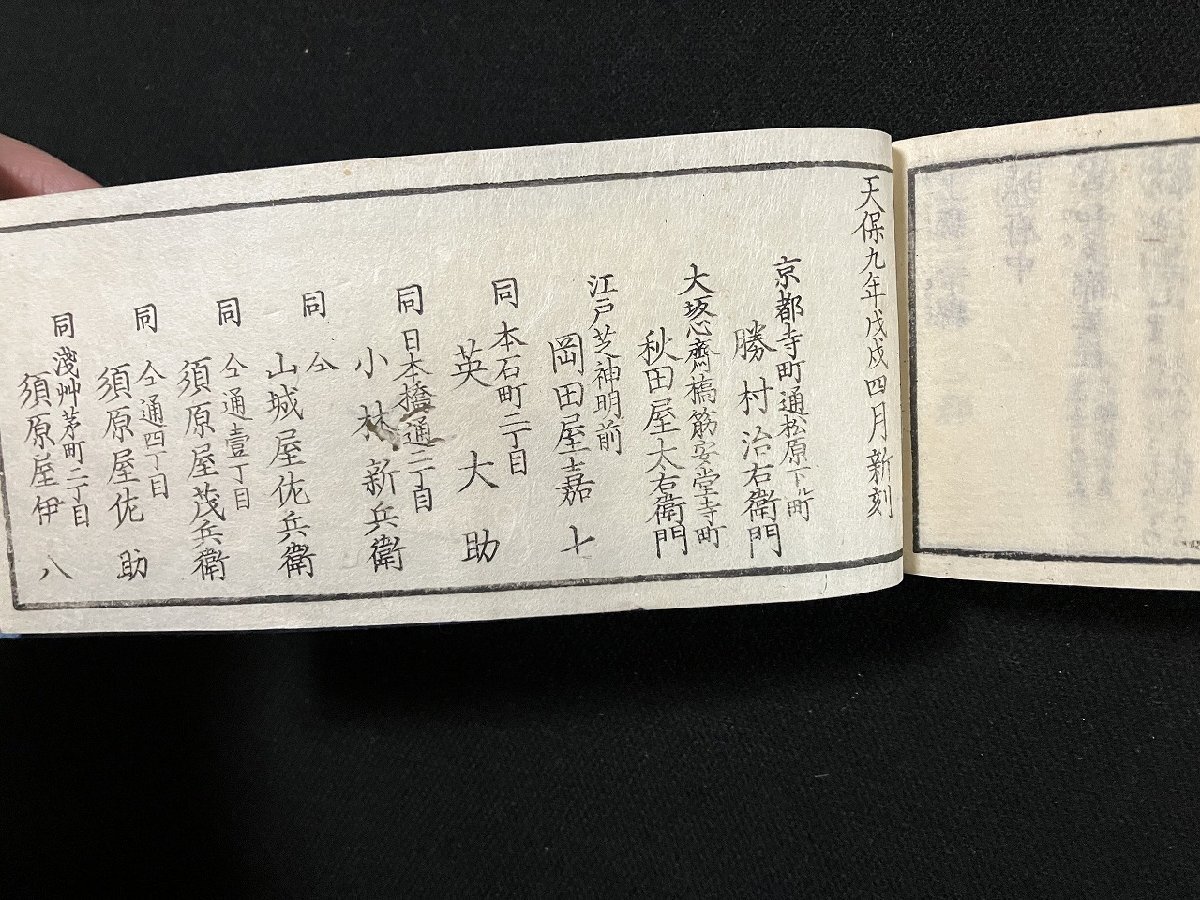 天保九年戊戌四月新刻
京都寺町通松原下ル町
勝村治右衛門
大坂心齋橋筋安堂寺町
秋田屋太右衛門
江戸芝神明前
岡田屋嘉七
同本石町二丁目
英大助
同日本橋通二丁目
小林新兵衛
同仝
山城屋佐兵衛
同仝通壹丁目
須原屋茂兵衛
同仝通四丁目
須原屋佐助
同淺艸茅町二丁目
須原屋伊八